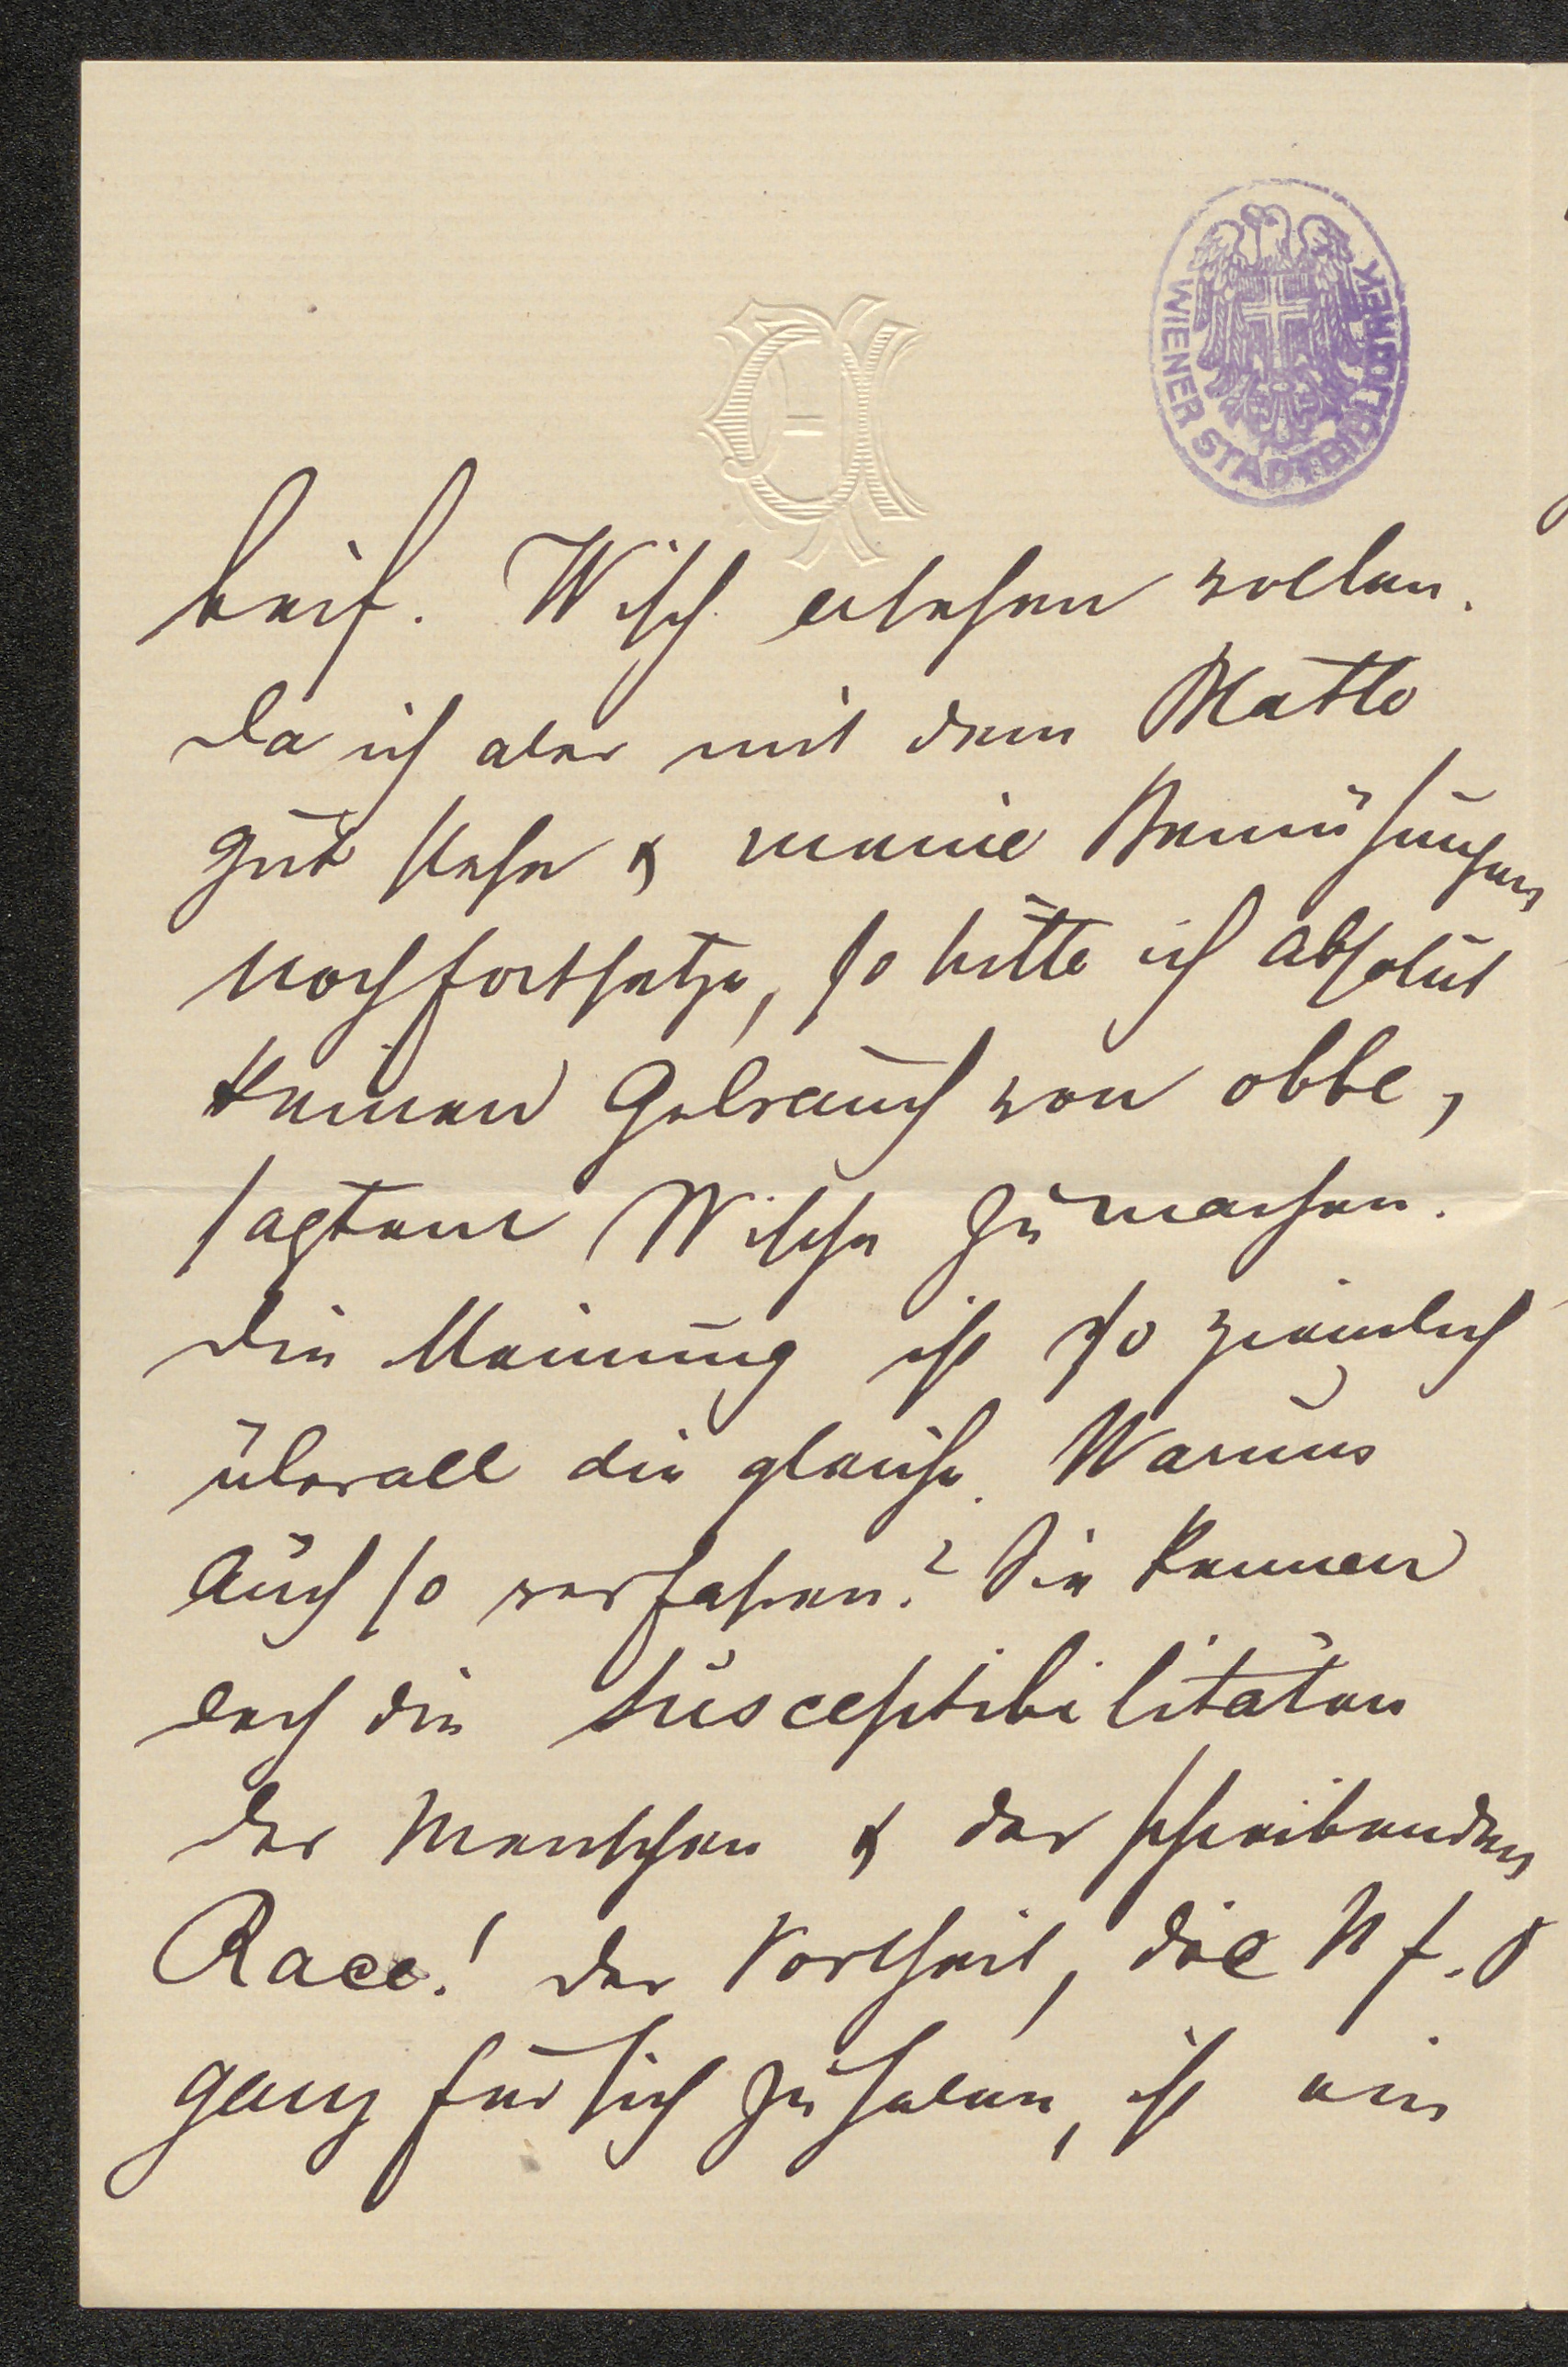 WIENER STADTBIBLIOTHEK
beif. Wisch ersehen wollen.
Da ich aber mit dem Blatte
gut stehe & meine Bemühungen
noch fortsetze, so bitte ich absolut
keinen Gebrauch von obbe,
sagtem Wische zu machen.
Die Meinung ist so ziemlich
überall die gleiche. Warum
auch so verfahren? Sie kennen
doch die Susceptibilitäten
der Menschen & der schreibenden
Race! Der Vortheil, die N f. P
ganz für sich zu haben, ist ein